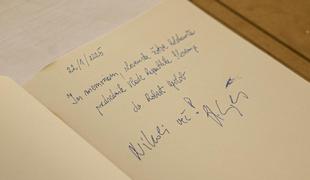 22/1/2025
In memoriam, slovenske žrtve holokavsta
predsednik Vlade Republike Slovenije
dr. Robert Golob
Nikoli več!